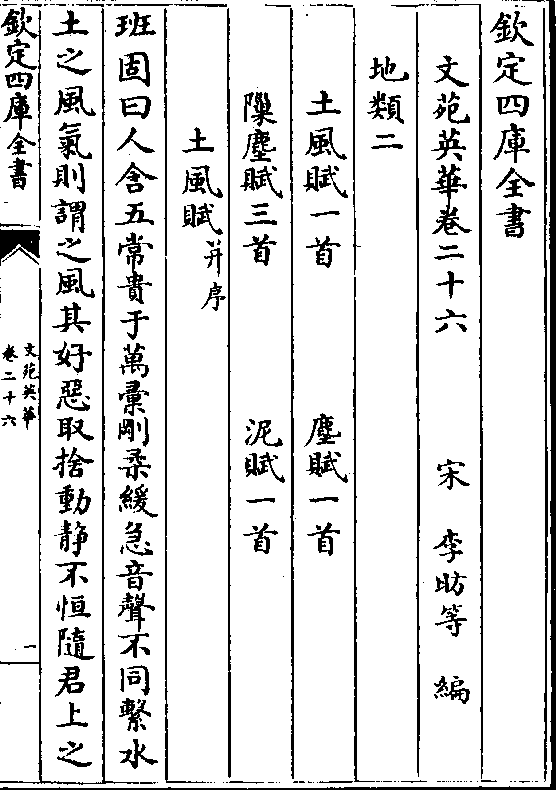 欽定四庫全書
文苑英華卷二十六 宋 李昉等 編
地類二
土風賦一首 塵賦一首
隟塵賦三首 泥賦一首
土風賦并序
班固曰人含五常貴于萬彙剛柔緩急音聲不同繫水
土之風氣則謂之風其好惡取捨動静不恒隨君上之
欽定四庫全書
文苑英華
卷二十六
一